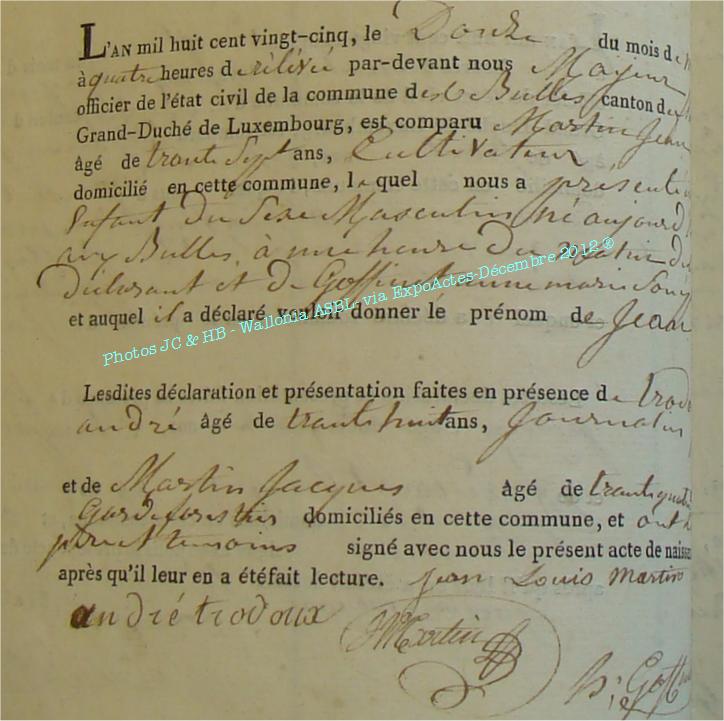 L'AN mil huit cent vingt-cinq, le Douze du mois de
à quatre heures de rélévée par-devant nous Majeur
officier de l'état civil de la commune des Bulles canton de
Grand-Duché de Luxembourg, est comparu Martin Jean
âgé de trante Sept ans, Cultivateur
domicilié en cette commune, lequel nous a présenté
Enfant du Sexe Masculin né aujourd
aux Bulles, à une heure du Matin du
Déclarant et de Goffinet anne marie Son
et auquel il a déclaré vouloir donner le prénom de Jean
Photos JC & HB - Wallonia ASBL- via ExpoActes-Décembre 2012 ®
Lesdites déclaration et présentation faites en présence de trodo
andré âgé de trante huit ans, Journalier
et de Martin Jacques âgé de trante quat
Garde forestier domiciliés en cette commune, et ont
per et temoins signé avec nous le présent acte de naiss
après qu'il leur en a étéfait lecture. jean Louis martin
andré trodoux JMartin
h; Goff